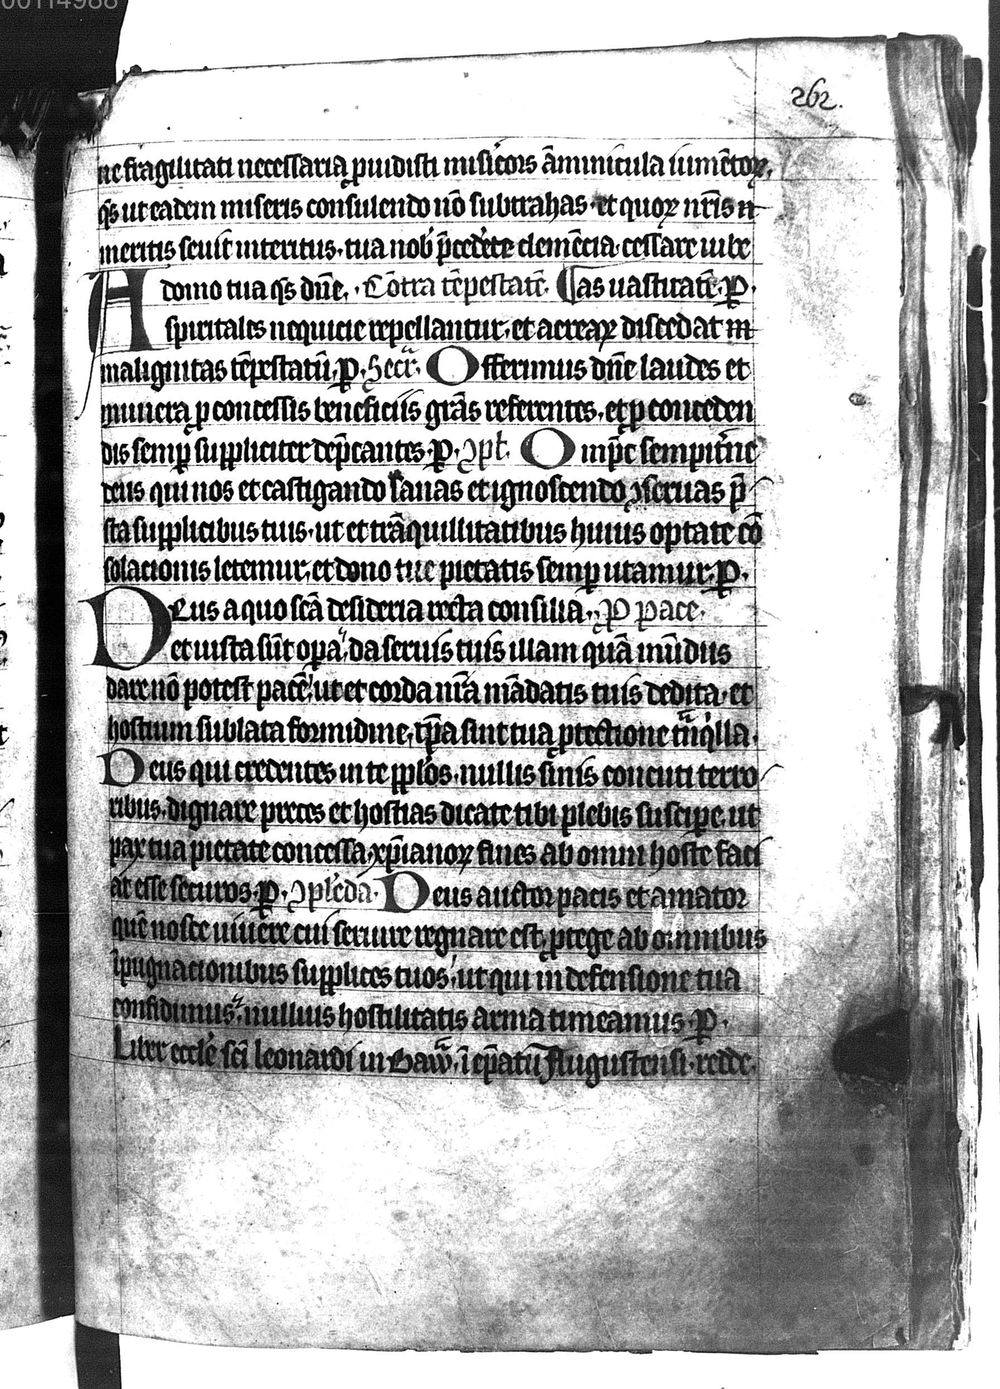 00114988
262.
ne fragilitati necessaria ꝓuidisti misic̄ors ām̄inicula iumētoꝝ,
q̄s ut eadem miseris consulendo nō subtrahas · et quoꝝ nr̄is n̄
meritis seuit interitus · tua nob̄ p̄cedēte clemēcia · cessare iube
domo tua q̄s dn̄e, · Cōtra tēpestatē. ⸿as uastitatē. P̲ ·
A spiritales nequicie repellantur · et aereaꝝ discedat
malignitas tēpestatū. P̲ · Secr̄. Offerimus dn̄e laudes et
munera ꝓ concessis beneficiis grās referentes · et ꝓ conceden
dis semꝑ suppliciter dep̄cantes · P̲ · ꝯpl̄. Omp̄c sempit̄ne
deus qui nos et castigando sanas et ignoscendo ꝯseruas p̄
sta supplicibus tuis · ut et trāquillitatibus huius optate cō
solacionis letemur, et dono tue pietatis semꝑ utamur. P̲ ·
Deus a quo scā desideria recta consilia · P̲ pace ·
et iusta sūt oꝑa, da seruis tuis illam quā mūdus
dare nō potest pacē, ut et corda nr̄a mādatis tuis dedita · et
hostium sublata formidine, tp̄a sint tua ꝓtectione tn̄q̇lla ·
Deus qui credentes in te pplōs · nullis sinis concuti terro
ribus · dignare preces et hostias dicate tibi plebis suscipe · ut
pax tua pietate concessa, xp̄ianoꝝ fines ab omni hoste faci
at esse securos · P̲ · ꝯplēda · Deus auctor pacis et amator
quē nosce uiuere cui seruire regnare est, ꝓtege ab omnibus
īpugnacionibus supplices tuos, ut qui in defensione tua
confidimus, nullius hostilitatis arma timeamus · P̲ ·
Liber eccl̄e sc̄i leonardi in Baw̄ · ī ep̄atū Augustensi · redde ·